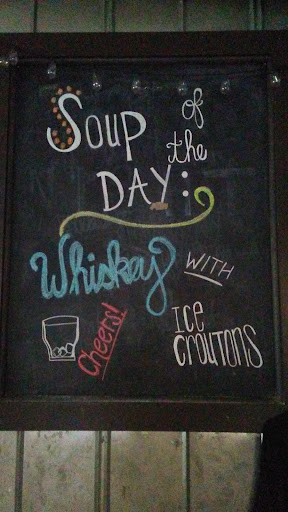 Soup of
the
DAY:
Whiskey WITH
Cheers! ICE
CROUTONS